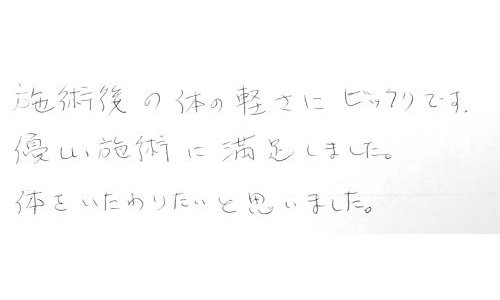 施術後の体の軽さにビックリです.
優しい施術に満足しました。
体をいたわりたいと思いました。